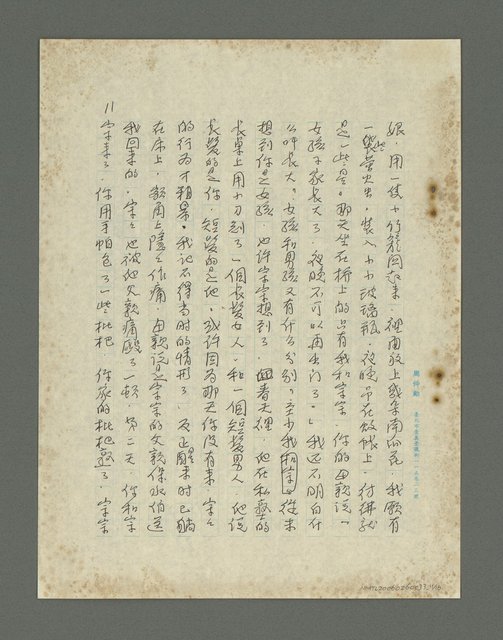 娘，用一隻小竹籠圍起來，裡面放上或朵南瓜花，我願有
一些螢火虫，裝入小小玻璃瓶，夜晚吊在蚊帳上，彷彿就
是一些星。那天坐在橋上的只有我和宇宇，你的母親說「
女孩子家長大了，夜晚不可以再出門了。」我还不明白什
么叫長大，女孩和男孩又有什么分別，至少我和宇宇從未
想到你是女孩，也許宇宇想到了，回春天裡，他在私塾的
長桌上用小刀刻了一個長髮女人，和一個短髮男人，他说
長髮的是你，短髮的是他，或许因為那天你没有来，宇宇
的行為才粗暴。我记不得当时的情形了，反正醒来时已躺
在床上，額角上隱隱作痛，母親说是宇宇的父親保水伯送
我回来的，宇宇也被他父親痛毆了一頓，第二天，你和宇
宇来了，你用手帕包了一些枇杷，你家的枇杷熟了，宇宇
11
周仲勳